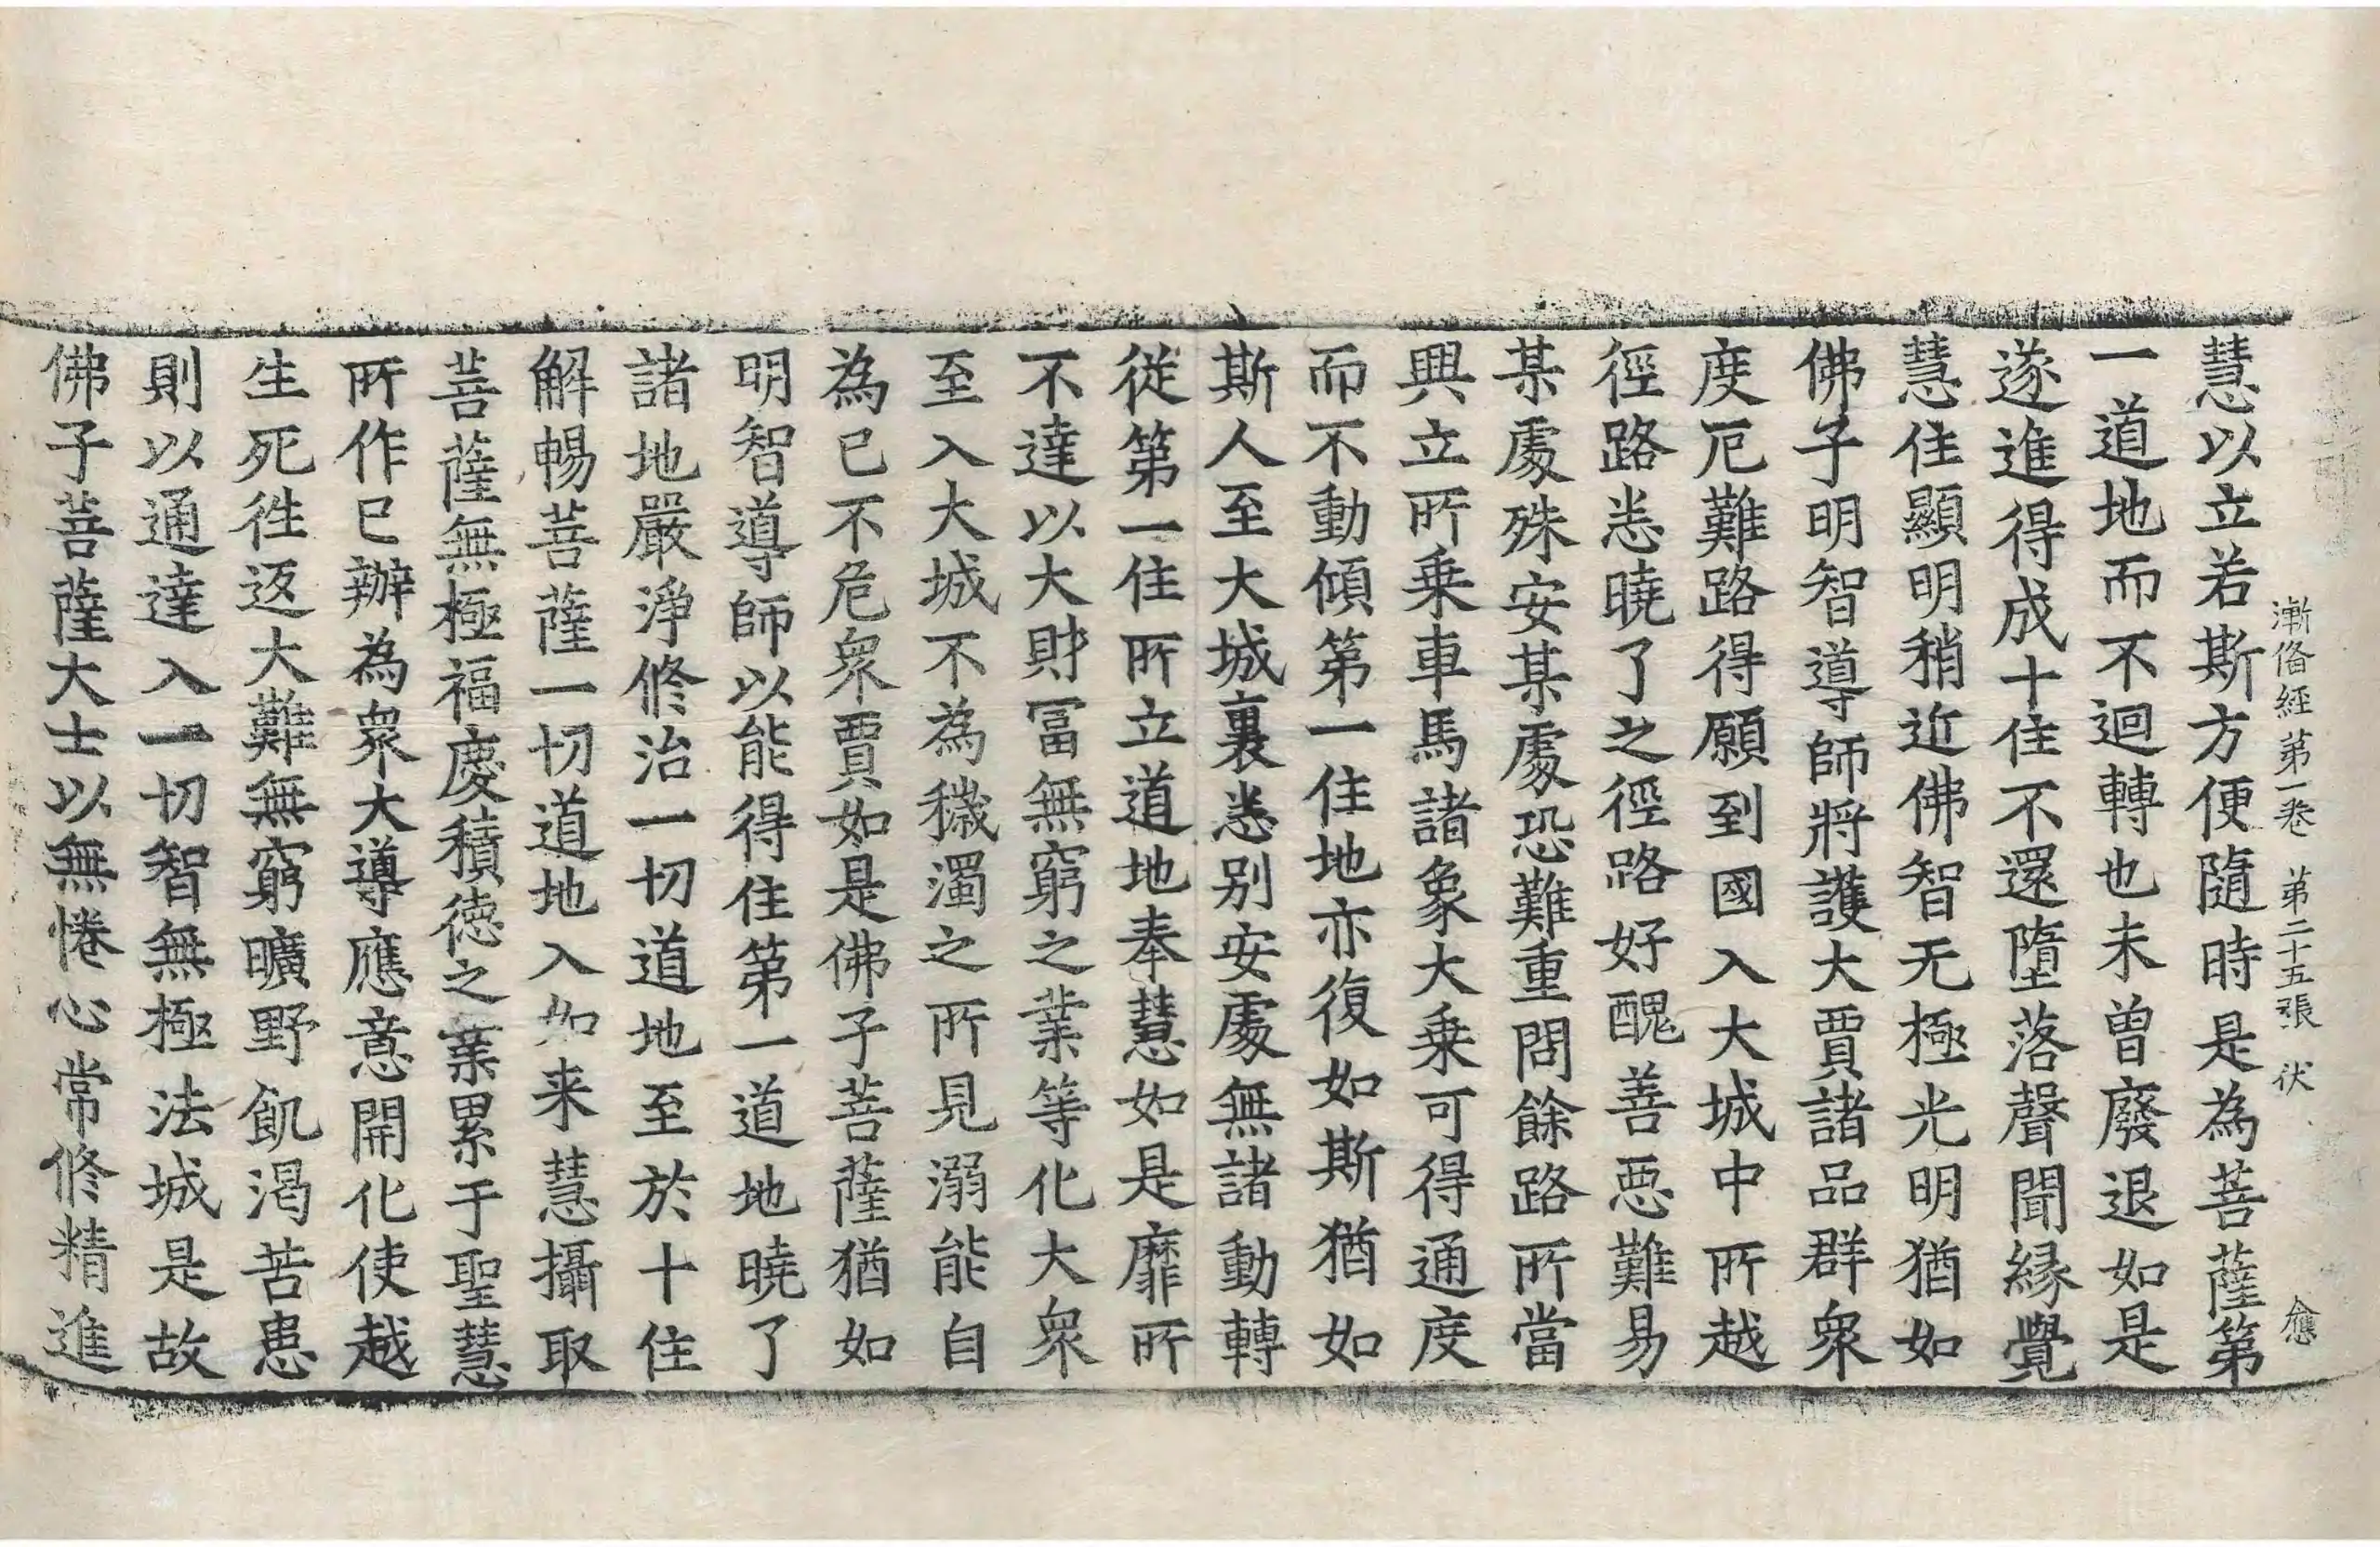 漸俻經第一卷　第二十五張　伏　應
慧以立若斯方便隨時是為菩薩第
一道地而不迴轉也未曾廢退如是
遂進得成十住不還墮落聲聞縁覺
慧住顯明稍近佛智无極光明猶如
佛子明智導師將護大賈諸品群衆
度厄難路得願到國入大城中所越
徑路悉曉了之徑路好醜善惡難易
某處殊安某處恐難重問餘路所當
興立所乗車馬諸象大乗可得通度
而不動傾第一住地亦復如斯猶如
斯人至大城裏悉别安處無諸動轉
從第一住所立道地奉慧如是靡所
不達以大財冨無窮之業等化大衆
至入大城不為穢濁之所見溺能自
為已不危衆賈如是佛子菩薩猶如
明智導師以能得住第一道地曉了
諸地嚴淨修治一切道地至於十住
解暢菩薩一切道地入如来慧攝取
菩薩無極福慶積德之業累于聖慧
所作已辦為衆大導應意開化使越
生死徃返大難無窮曠野飢渴苦患
則以通達入一切智無極法城是故
佛子菩薩大士以無惓心常修精進